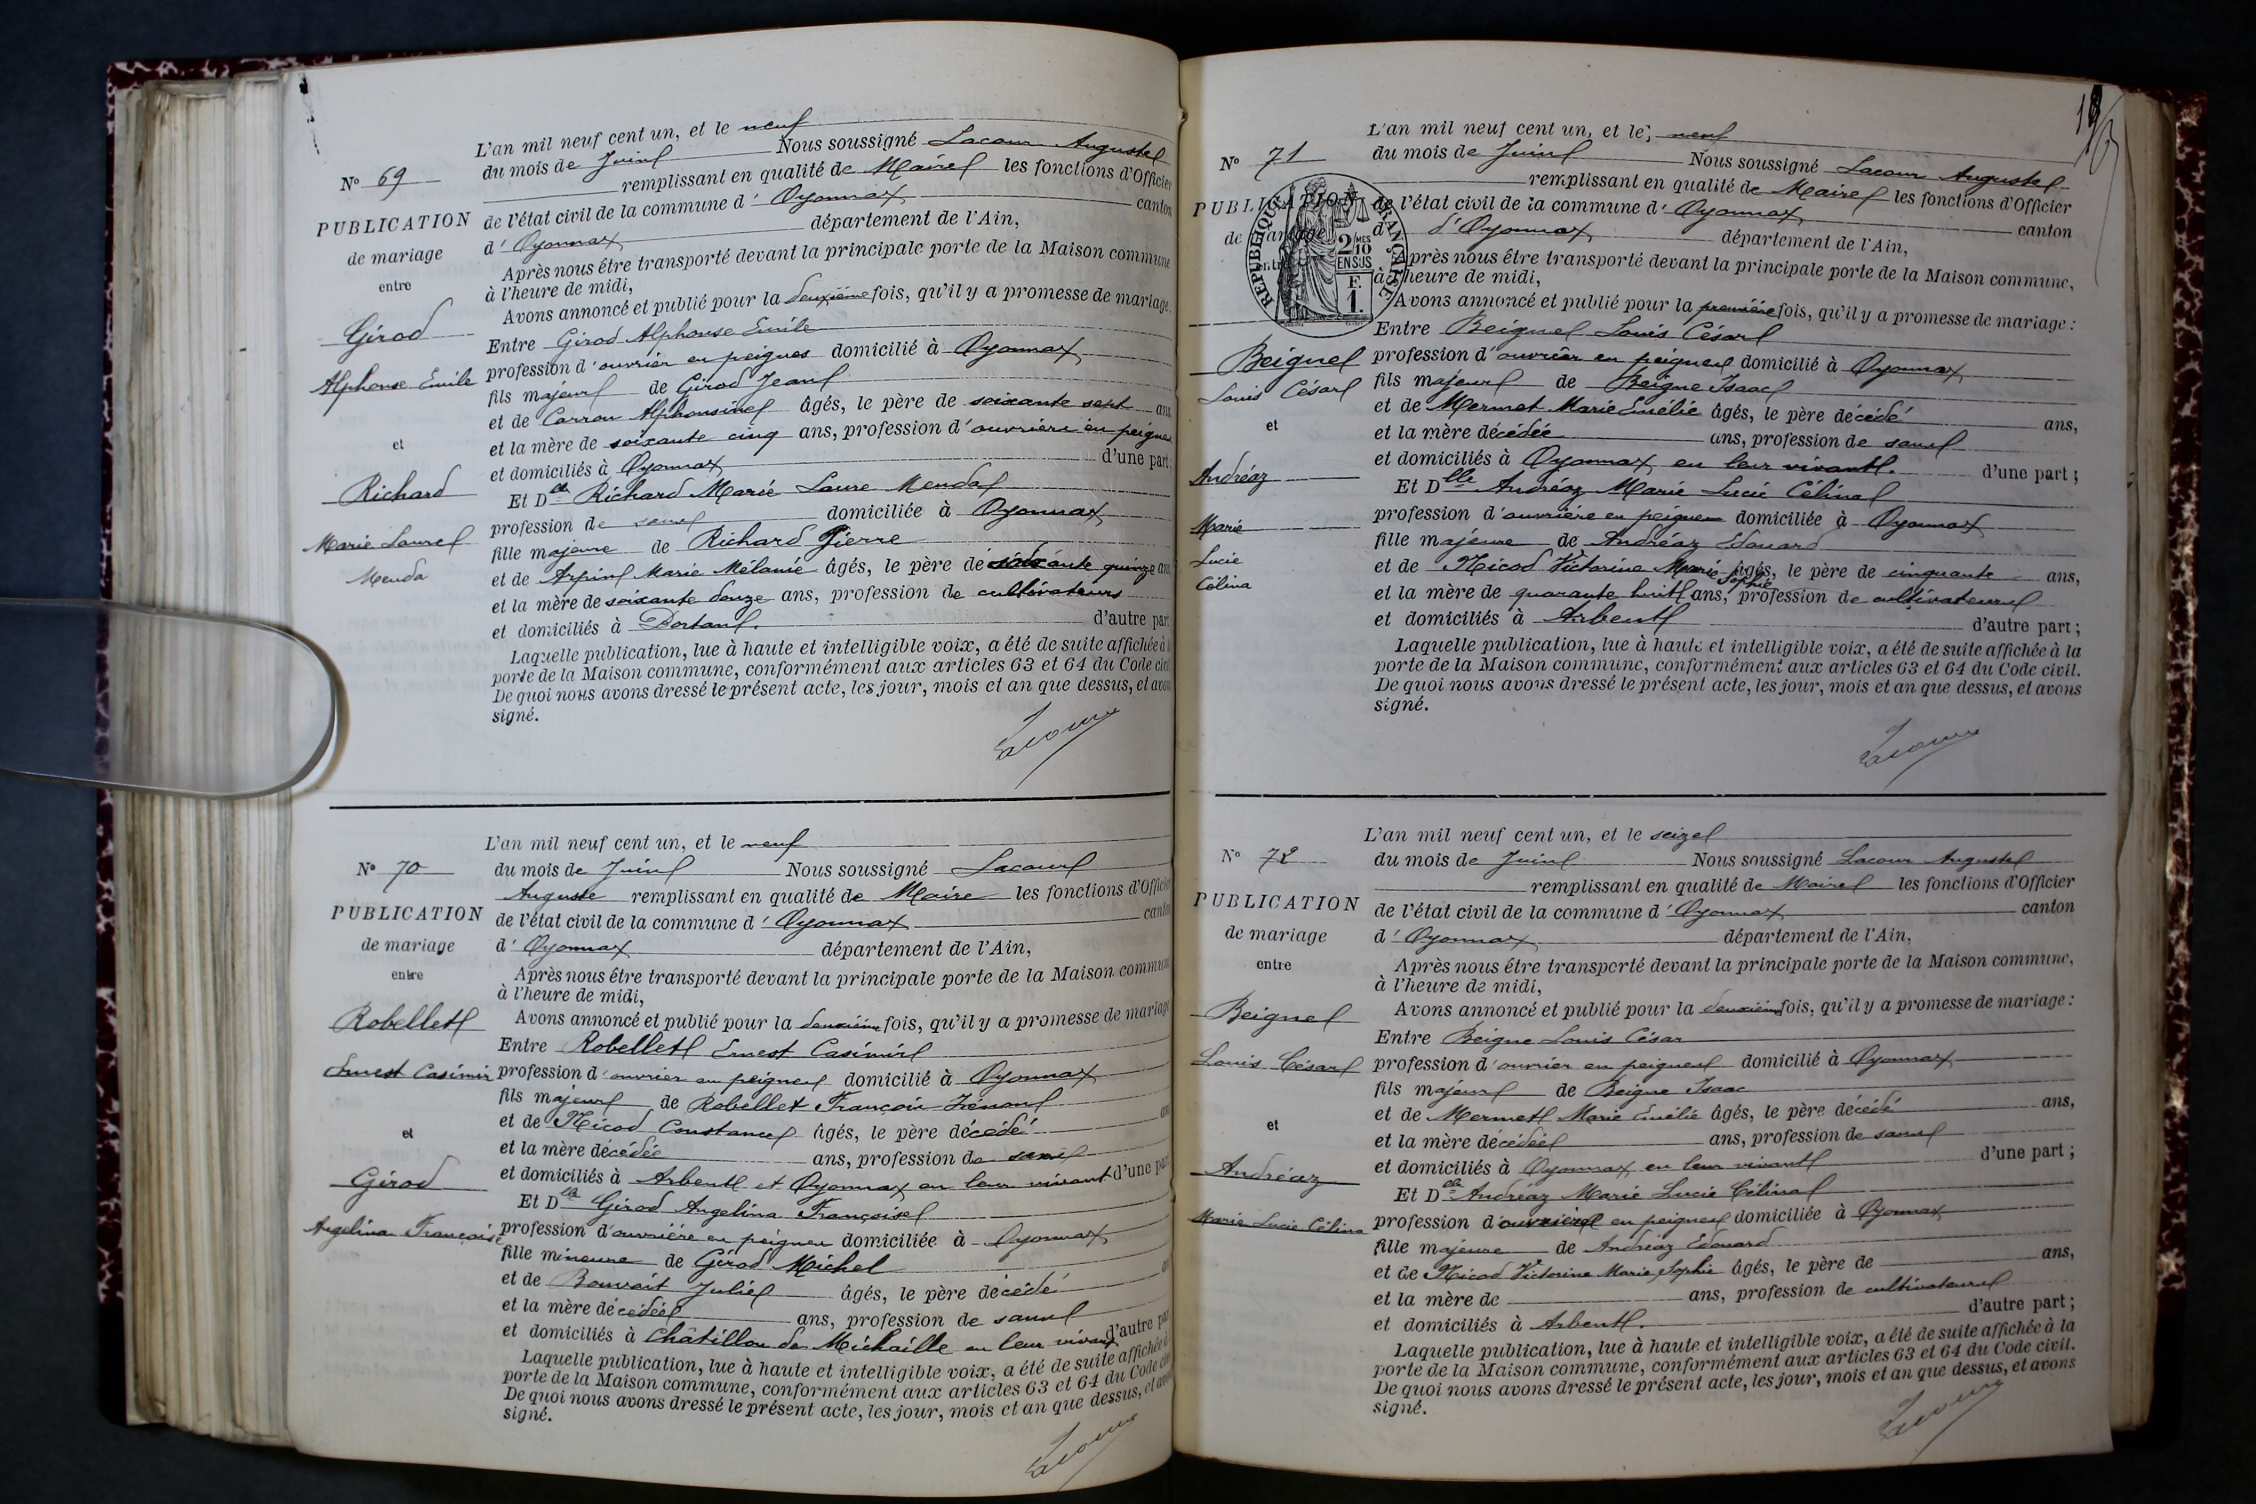 L'an mil neuf cent un, et le neuf
du mois de Juin Nous soussigné Lacour Auguste
remplissant en qualité de Maire les fonctions d'Officier
de l'état civil de la commune d' Oyonnax canton
d' Oyonnax département de l'Ain,
Après nous être transporté devant la principale porte de la Maison commune
à l'heure de midi,
Avons annoncé et publié pour la deuxième fois, qu'il y a promesse de mariage
Entre Girod Alphonse Emile
profession d'ouvrier en peignes domicilié à Oyonnax
fils majeur de Girod Jean
et de Carron Alphonsine âgés, le père de soixante sept ans
et la mère de soixante cinq ans, profession d'ouvrière en peignes
et domiciliés à Oyonnax d'une part;
Et Dlle Richard Marie Laure Menda
profession de sans domiciliée à Oyonnax
fille majeure de Richard Pierre
et de Arpin Marie Mélanie âgés, le père de soixante quinze ans
et la mère de soixante douze ans, profession de cultivateurs
et domiciliés à Dortan. d'autre part
Laquelle publication, lue à haute et intelligible voix, a été de suite affichée à la
porte de la Maison commune, conformément aux articles 63 et 64 du Code civil
De quoi nous avons dressé le présent acte, les jour, mois et an que dessus, et avons
signé.
Lacour
N° 69
PUBLICATION
de mariage
entre
Girod
Alphonse Emile
et
Richard
Marie Laure
Menda
L'an mil neuf cent un, et le neuf
du mois de Juin Nous soussigné Lacour
Auguste remplissant en qualité de Maire les fonctions d'Officier
de l'état civil de la commune d' Oyonnax canton
d' Oyonnax département de l'Ain,
Après nous être transporté devant la principale porte de la Maison commune
à l'heure de midi,
Avons annoncé et publié pour la deuxième fois, qu'il y a promesse de mariage
Entre Robellet Ernest Casimir
profession d'ouvrier en peignes domicilié à Oyonnax
fils majeur de Robellet François
et de Nicod Constance âgés, le père décédé ans
et la mère décédée ans, profession de sans
et domiciliés à Arbent et Oyonnax en leur vivant d'une part
Et Dlle Girod Angelina Françoise
profession d'ouvrière en peignes domiciliée à Oyonnax
fille mineure de Girod Michel
et de Bouvait Julie âgés, le père décédé ans
et la mère décédée ans, profession de sans
et domiciliés à Châtillon de Michaille en leur vivant d'autre part
Laquelle publication, lue à haute et intelligible voix, a été de suite affichée à
porte de la Maison commune, conformément aux articles 63 et 64 du Code civil
De quoi nous avons dressé le présent acte, les jour, mois et an que dessus, et avons
signé.
Lacour
N° 70
PUBLICATION
de mariage
entre
Robellet
Ernest Casimir
et
Girod
Angelina Françoise
L'an mil neuf cent un, et le neuf
du mois de Juin Nous soussigné Lacour Auguste
remplissant en qualité de Maire les fonctions d'Officier
de l'état civil de la commune d' Oyonnax canton
d' d'Oyonnax département de l'Ain,
Après nous être transporté devant la principale porte de la Maison commune,
à l'heure de midi,
Avons annoncé et publié pour la première fois, qu'il y a promesse de mariage :
Entre Beigne Louis César
profession d'ouvrier en peignes domicilié à Oyonnax
fils majeur de Beigne Isaac
et de Mermet Marie Emélie âgés, le père décédé ans,
et la mère décédée ans, profession de sans
et domiciliés à Oyonnax en leur vivant. d'une part ;
Et Dlle Andréaz Marie Lucie Célina
profession d'ouvrière en peignes domiciliée à Oyonnax
fille majeure de Andréaz Edouard
et de Nicod Victorine Marie Sophie âgés, le père de cinquante ans,
et la mère de quarante huit ans, profession de cultivateurs
et domiciliés à Arbent d'autre part ;
Laquelle publication, lue à haute et intelligible voix, a été de suite affichée à la
porte de la Maison commune, conformément aux articles 63 et 64 du Code civil.
De quoi nous avons dressé le présent acte, les jour, mois et an que dessus, et avons
signé.
Lacour
N° 71
PUBLICATION
de mariage
entre
RÉPUBLIQUE FRANÇAISE
2/MES
10
EN SUS
F.
1.
Beigne
Louis César
et
Andréaz
Marie
Lucie
Célina
L'an mil neuf cent un, et le seize
du mois de Juin Nous soussigné Lacour Auguste
remplissant en qualité de Maire les fonctions d'Officier
de l'état civil de la commune d' Oyonnax canton
d' Oyonnax département de l'Ain,
Après nous être transporté devant la principale porte de la Maison commune,
à l'heure de midi,
Avons annoncé et publié pour la deuxième fois, qu'il y a promesse de mariage :
Entre Beigne Louis César
profession d'ouvrier en peignes domicilié à Oyonnax
fils majeur de Beigne Isaac
et de Mermet Marie Emélie âgés, le père décédé ans,
et la mère décédée ans, profession de sans
et domiciliés à Oyonnax en leur vivant d'une part ;
Et Dlle Andréaz Marie Lucie Célina
profession d'ouvrière en peignes domiciliée à Oyonnax
fille majeure de Andréaz Edouard
et de Nicod Victorine Marie Sophie âgés, le père de ans,
et la mère de ans, profession de cultivateurs
et domiciliés à Arbent. d'autre part ;
Laquelle publication, lue à haute et intelligible voix, a été de suite affichée à la
porte de la Maison commune, conformément aux articles 63 et 64 du Code civil.
De quoi nous avons dressé le présent acte, les jour, mois et an que dessus, et avons
signé.
Lacour
N° 72
PUBLICATION
de mariage
entre
Beigne
Louis César
et
Andréaz
Marie Lucie Célina